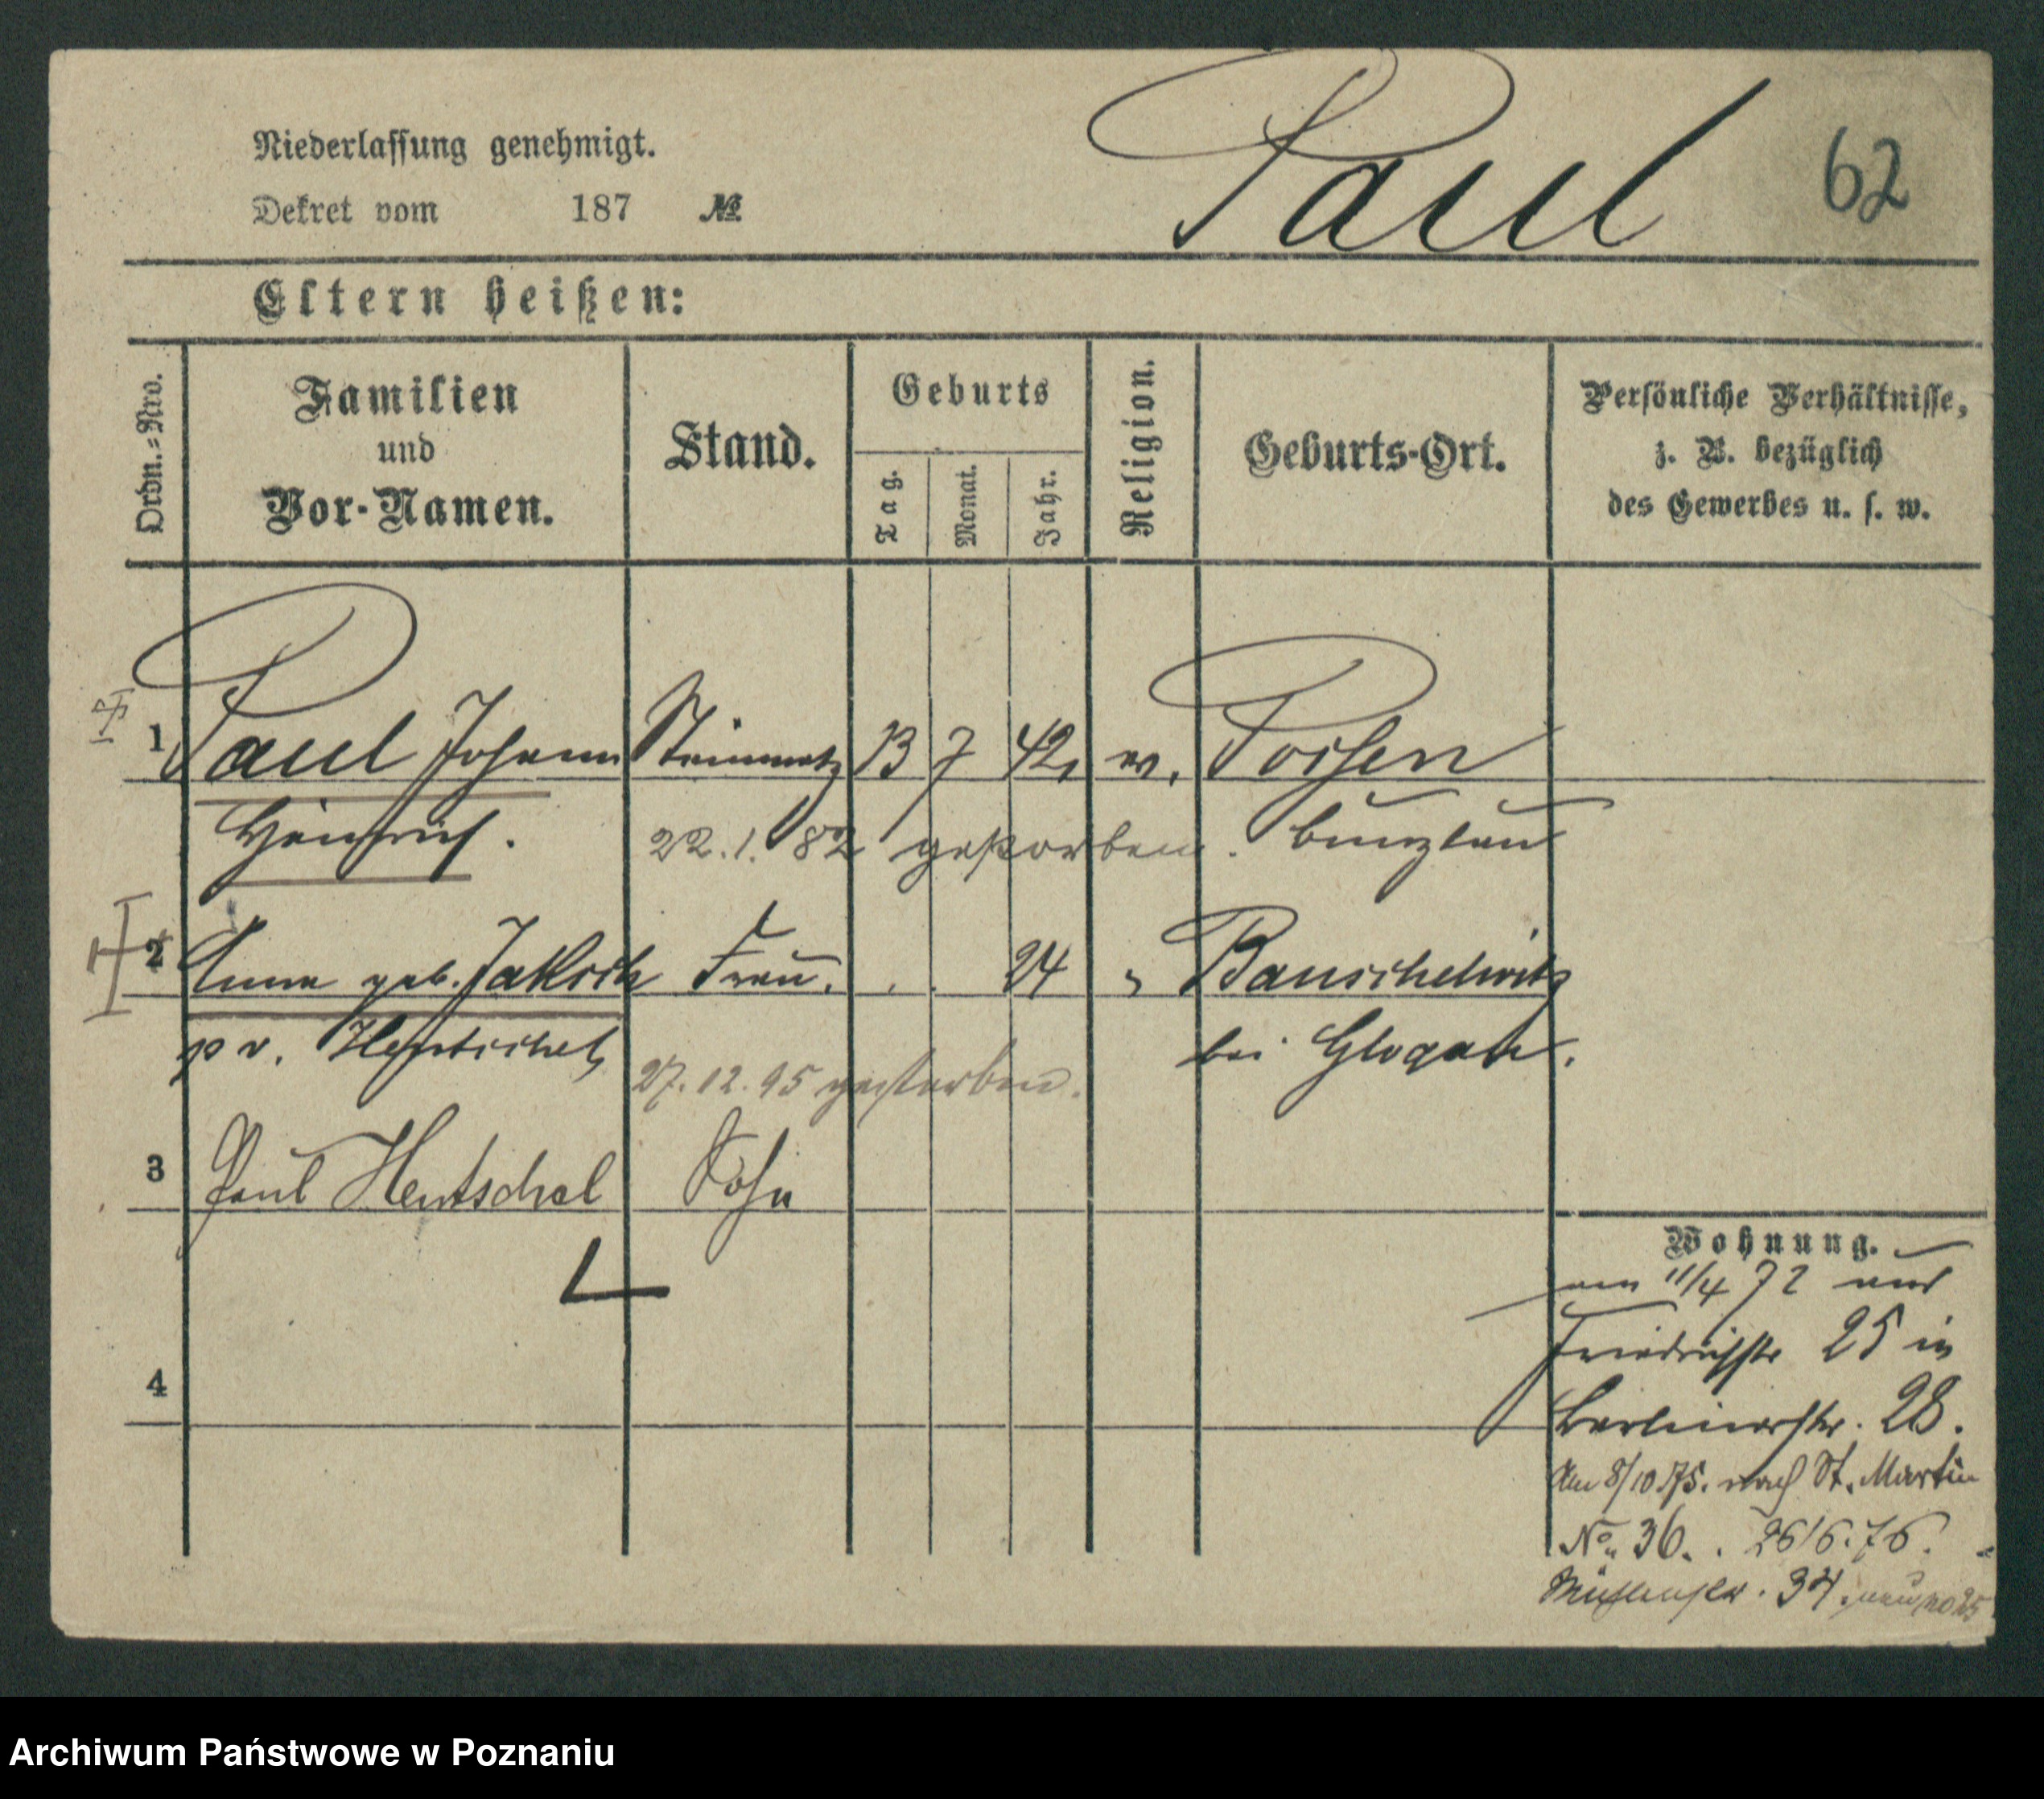 Niederlassung genehmigt.
Dekret vom 187 №
Paul
62
Eltern heißen:
Ordn.-Nro.
Familien
und
Vor-Namen.
Stand.
Geburts
Tag.
Monat.
Jahr.
Religion.
Geburts-Ort.
Persönliche Verhältnisse,
z. B. bezüglich
des Gewerbes u. s. w.
1 Paul Johann Steinmetz 13 7 42
Heinrich. 22.1.82 gestorben. Bunzlau
2 Anna geb. Jaksch Frau. 24
p v. Hentschel, bei Glogau.
27.12.95 gestorben.
3 Paul Hentschel Sohn
4
Wohnung.
am 11/4 72 aus
Friedrichstr 25 in
Berlinerstr. 28.
Am 8/10.75. nach St. Martin
No. 36. . 26/6.76.
Mühlenstr. 34. neu no 25
Archiwum Państwowe w Poznaniu